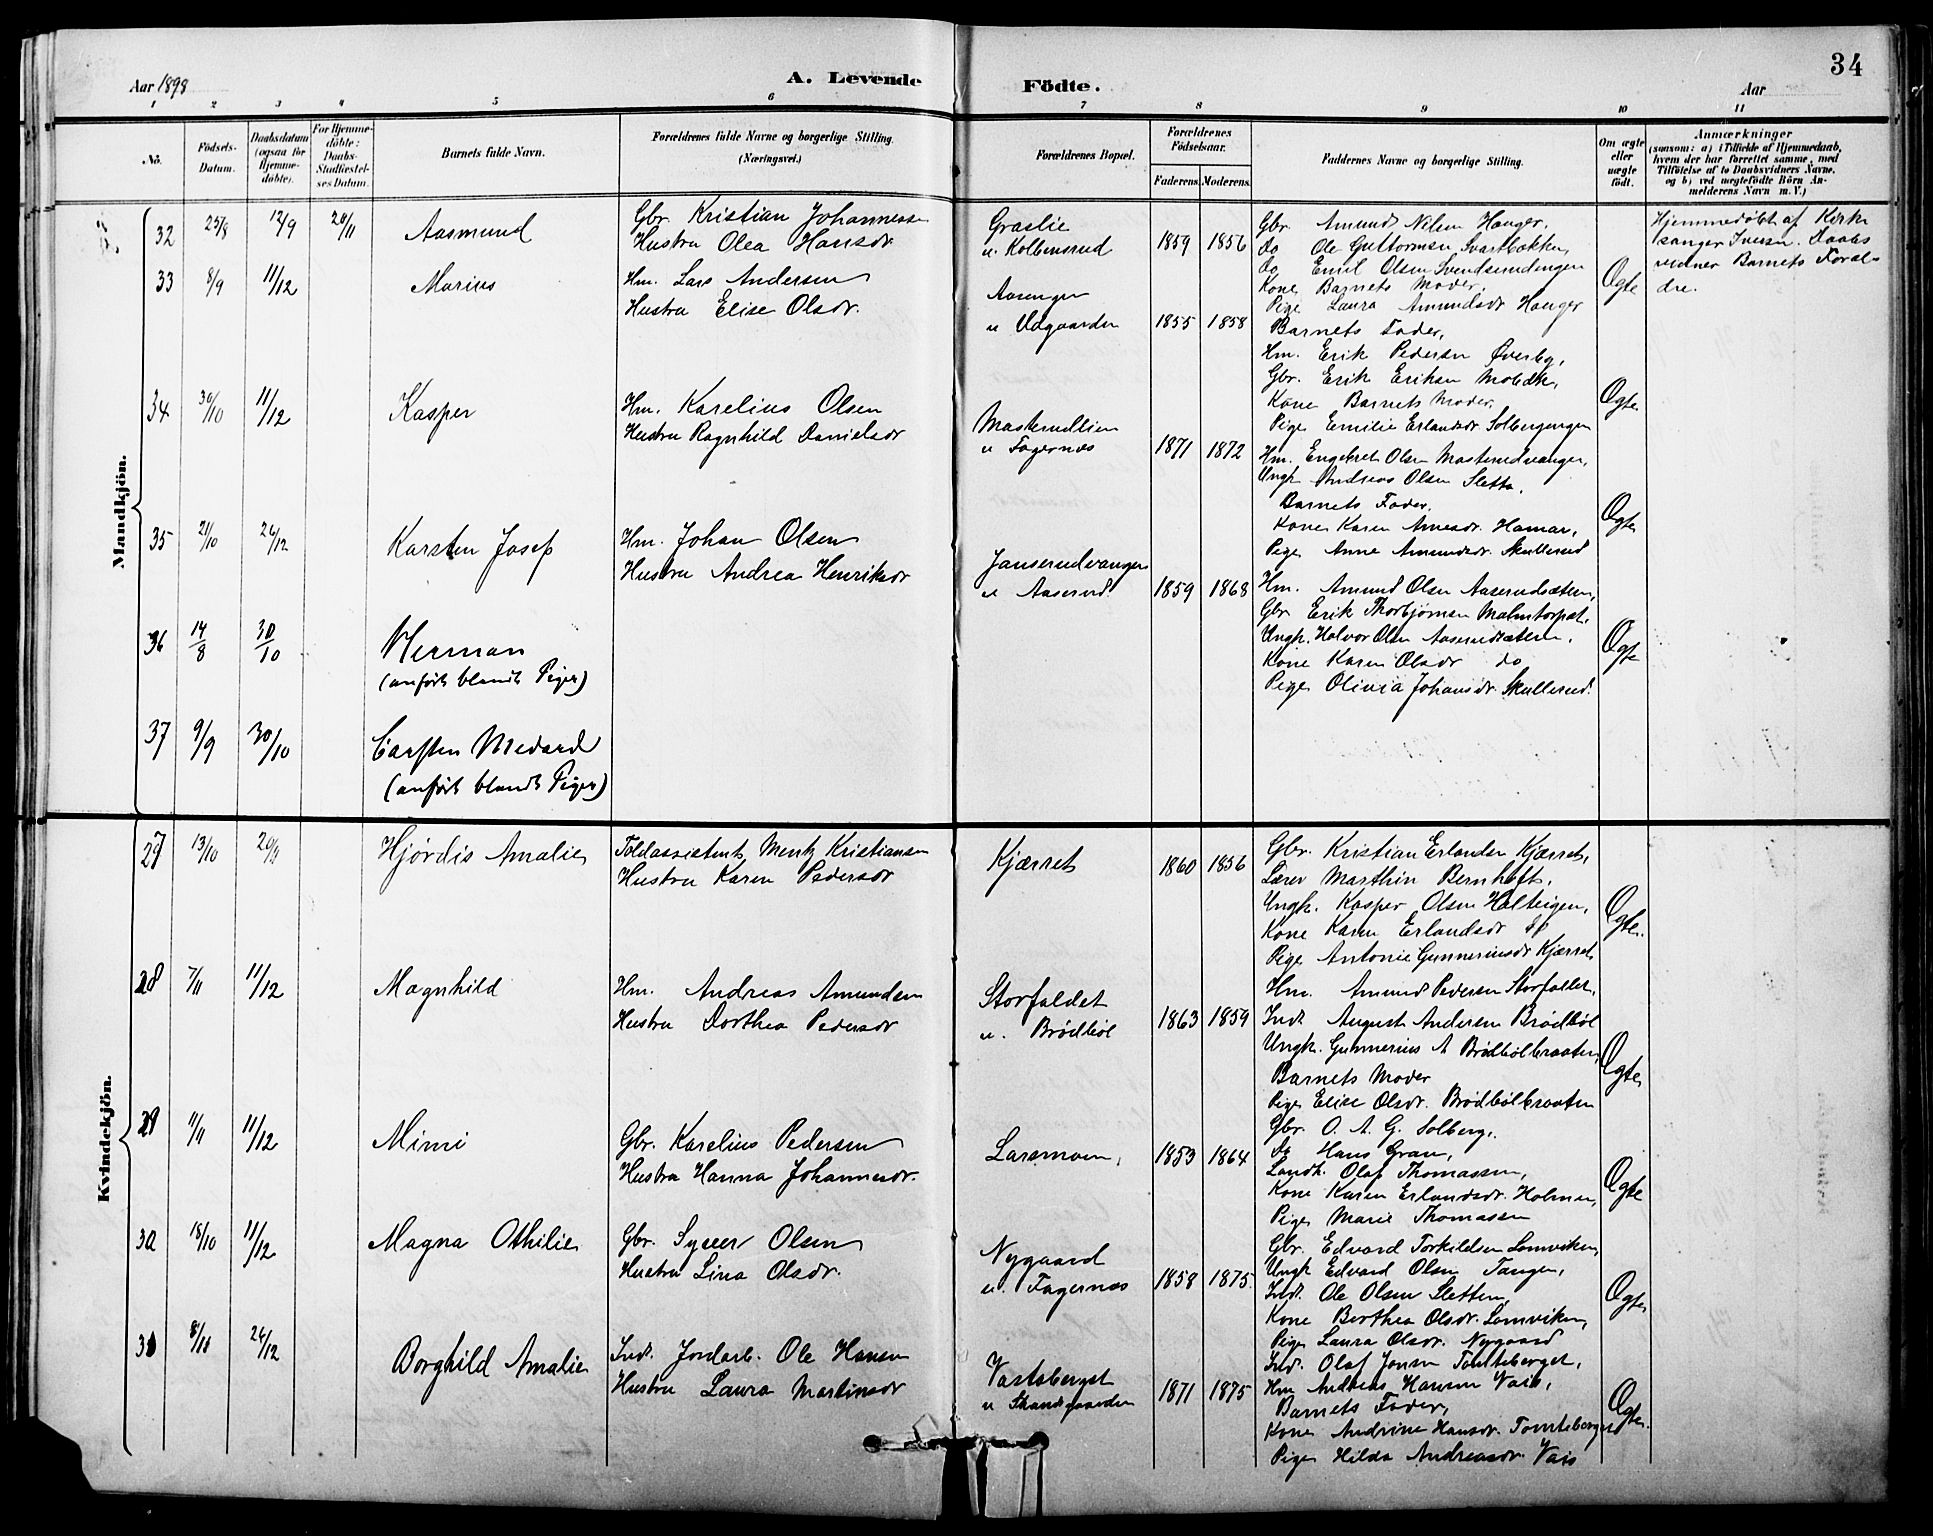 34
Aar 1898
A. Levende Födte.
Aar
1 2 3 4 5 6 7 8 9 10 11
No.
Födsels-Datum.
Daabsdatum (ogsaa for Hjemme-döbte).
For Hjemme-döbte: Daabs-Stadfæstel-ses Datum.
Barnets fulde Navn.
Forældrenes fulde Navne og borgerlige Stilling. (Næringsvei.)
Forældrenes Bopæl.
Forældrenes Födselsaar.
Faderens Moderens
Faddernes Navne og borgerlige Stilling.
Om ægte eller uægte födt.
Anmærkninger
(saasom: a) i Tilfælde af Hjemmedaab,
hvem der har forrettet samme, med
Tilföielse af to Daabsvidners Navne,
og b) ved uægtefödte Börn An-
melderens Navn m. V.)
Mandkjön.
32 25/8 12/9 20/11 Aasmund
Gbr. Kristian Johannessen
Hustru Olea Hansdr.
Graslie
u. Kolbensrud
1859 1856
Gbr. Amund Nilsen Hanger.
Do Ole Guttormsen Svartbækken,
Do Emil Olsen Svendsrudengen
Kone Barnets Moder.
Pige Laura Amundsdr Hanger
Ægte
Hjemmedøbt af Kirke
sanger Iversen. Daabs
vidner Barnets Foræl-
dre.
33 8/9 11/12 Marius
Hm. Lars Andersen
Hustru Elise Olsdr.
Aasengen
u Udgaarden
1855 1858
Barnets Fader,
Hm. Erik Pedersen Øverby,
Gbr. Erik Eriksen Mobæk,
Kone Barnets Moder.
Pige Emilie Erlandsdr Solbergengen
Ægte
34 30/10 11/12 Kasper
Hm. Karelius Olsen
Hustru Ragnhild Danielsdr
Masterudlien
u Fagernæs
1871 1872
Hm. Engebret Olsen Masterudvangen,
Ungk Andreas Olsen Sletta.
Barnets Fader.
Kone Karen Arnesdr. Hamar,
Pige Anne Amundsdr. Skullerud
Ægte
35 21/10 26/12 Karsten Josef
Hm. Johan Olsen
Hustru Andrea Henriksdr
Janserudvangen
u Aaserud
1859 1868
Hm. Amund Olsen Aaserudsæteren,
Gbr Erik Thorbjørnsen Malmtorpet.
Ungk. Halvor Olsen Aaserudsæteren.
Kone Karen Olsdr do
Pige Olivia Johansdr. Skullerud.
Ægte
36 14/8 30/10 Herman
(anført blandt Piger)
37 9/9 30/10 Carsten Medard
(anført blandt Piger)
Kvindekjön.
27 13/10 Hjørdis Amalie
Toldassistent Mentz Kristiansen
Hustru Karen Pedersdr
Kjærret
1860 1856
Gbr. Kristian Erlandsen Kjærret,
Lærer Marthin Bernhoft,
Ungk. Kasper Olsen Halteigen,
Kone Karen Erlandsdr
Pige Antonie Gunneriusdr Kjærret
Ægte.
28 7/11 11/12 Magnhild
Hm. Andreas Amundsen
Hustru Dorthea Pedersdr
Storfaldet
u. Brødbøl
1863 1859
Hm. Amund Pedersen Storfaldet.
Indr. August Andersen Brødbøl
Ungk. Gunnerius A Brødbølbraaten
Barnets Moder
Pige Elise Olsdr. Brødbølbraaten
Ægte
29 11/11 11/12 Mimi
Gbr. Karelius Pedersen
Hustru Hanna Johannesdr.
Larsmoen,
1853 1864
Gbr. O. A. G. Solberg,
Do Hans Gran,
Landh. Olaf Thomassen,
Kone Karen Erlandsdr. Holmen,
Pige Marie Thomassen
Ægte
30 18/10 11/12 Magna Othilie
Gbr. Syver Olsen
Hustru Lina Olsdr.
Nygaard
u. Fagernæs
1858 1875.
Gbr. Edvard Torkildsen Lomviken,
Ungk Edvard Olsen Tangen,
Indr. Ole Olsen Sletten,
Kone Berthea Olsdr. Lomviken,
Pige Laura Olsdr. Nygaard
Ægte
31 26/12 Borghild Amalie
Indr. Jordarb. Ole Hansen
Hustru Laura Martinsdr
Vastaberget
u Strandgaarden
1871 1875
Indr. Olaf Jansen Tomteberget,
Hm Andreas Hansen Vais,
Barnets Fader,
Kone Andrine Hansdr. Tomteberget
Pige Hilda Andreasdr. Vais
Ægte.